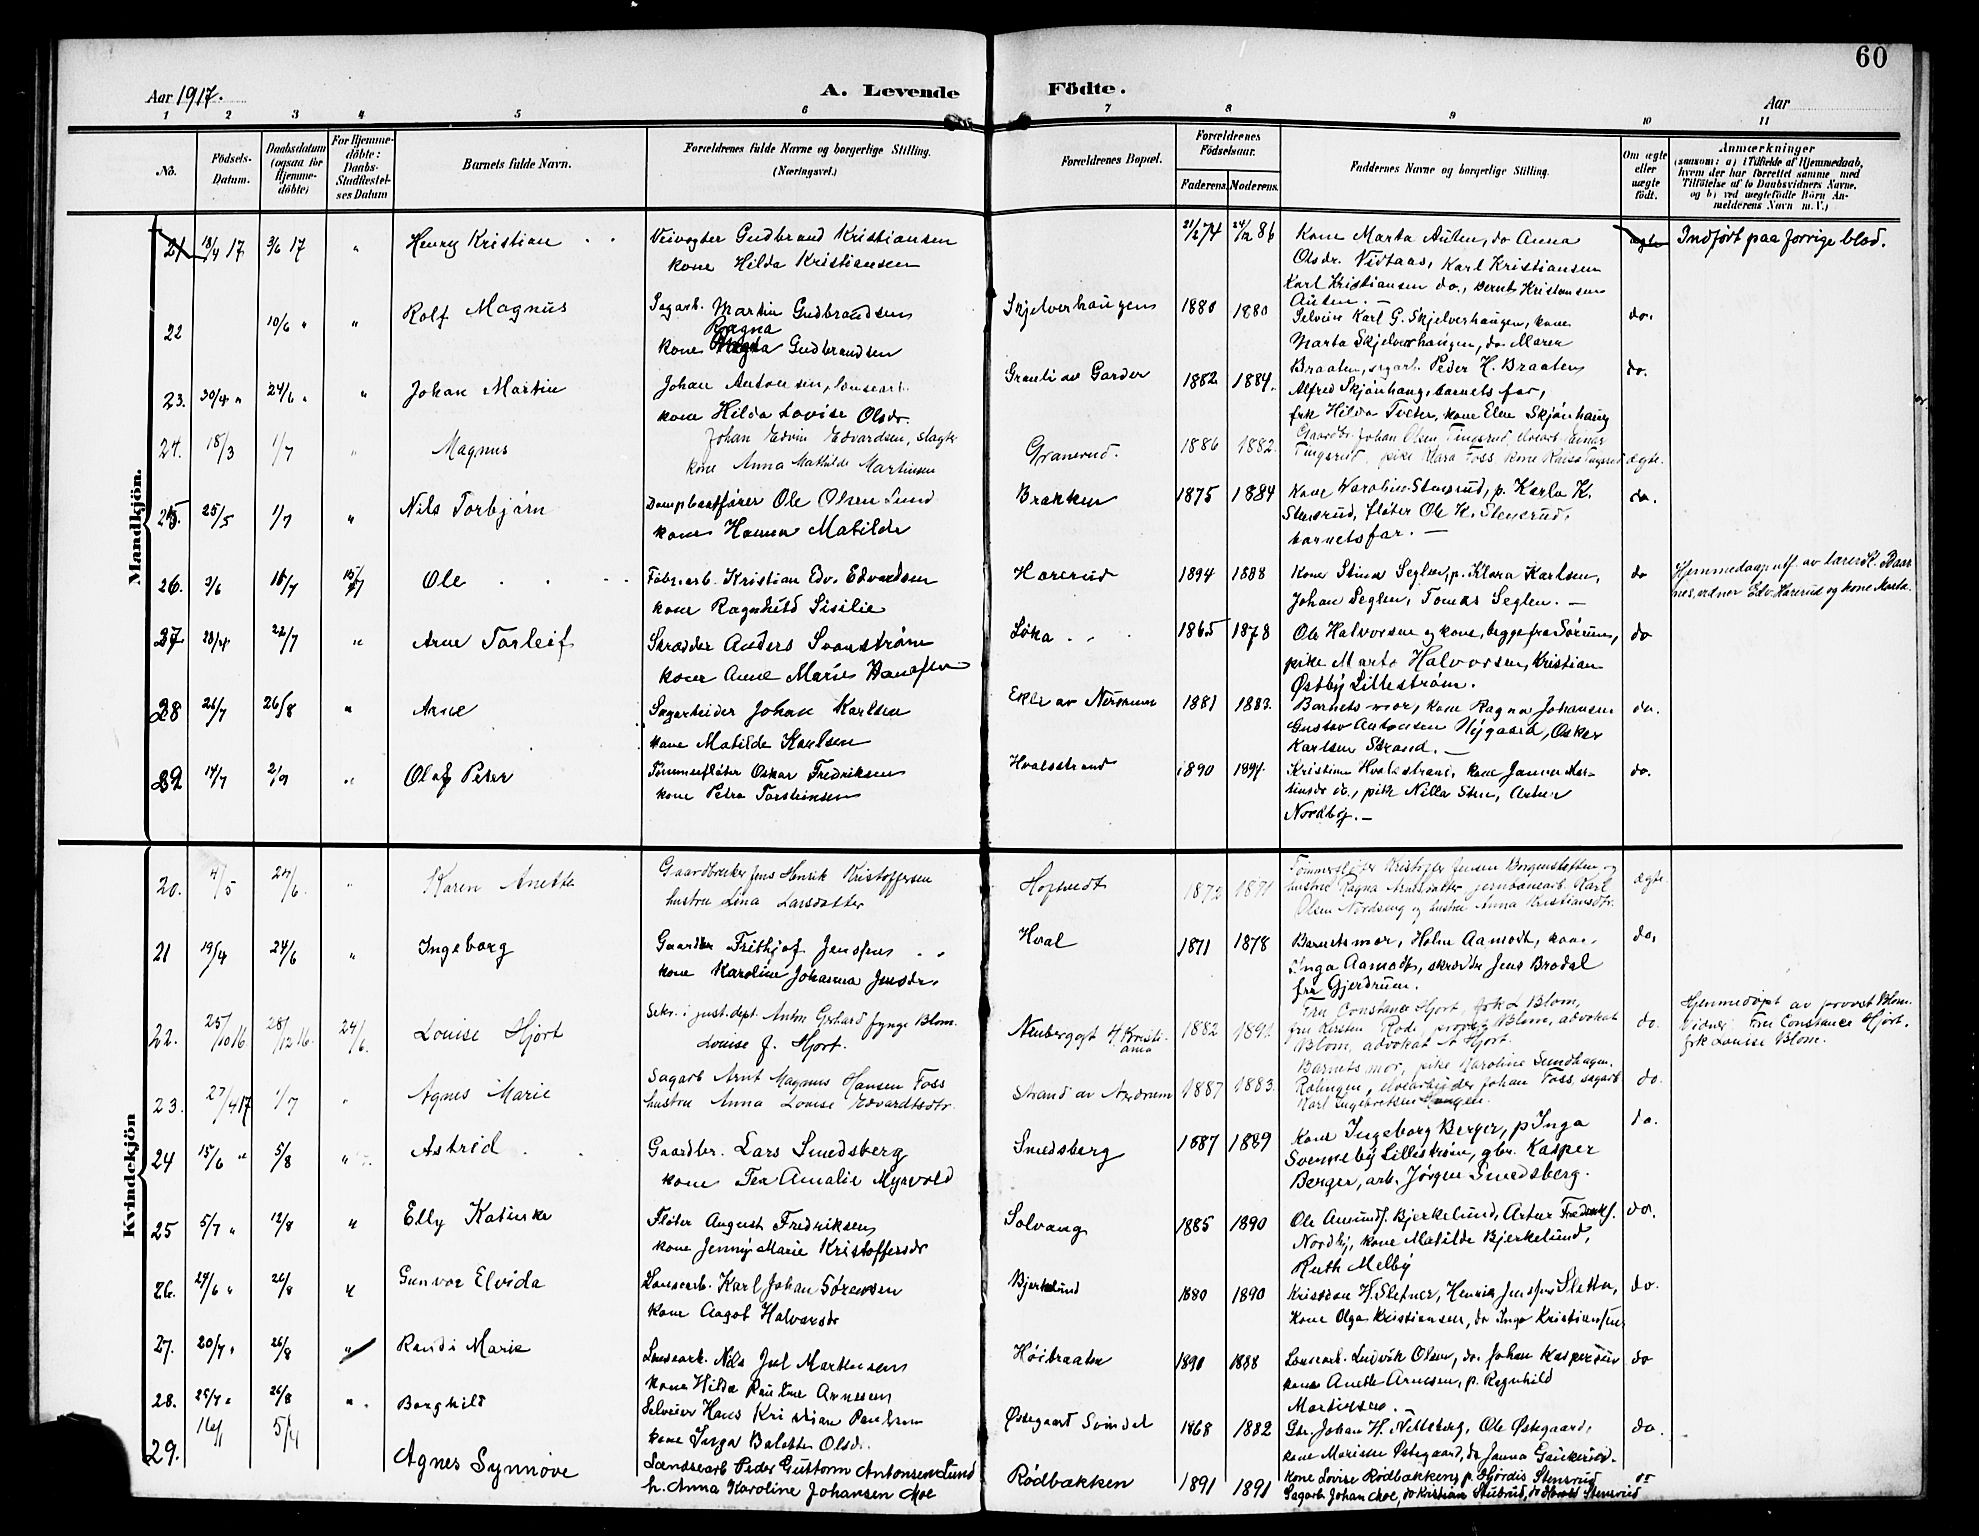 60
Aar 1917.
A. Levende Födte.
Aar
1 2 3 4 5 6 7 8 9 10 11
No.
Födsels-Datum.
Daabsdatum (ogsaa for Hjemme-döbte)
For Hjemme-döbte: Daabs-Stadfæstelses Datum
Barnets fulde Navn.
Forældrenes fulde Navne og borgerlige Stilling. (Næringsvei.)
Forældrenes Bopæl.
Forældrenes Födselsaar.
Faderens. Moderens.
Faddernes Navne og borgerlige Stilling.
Om ægte eller uægte födt.
Anmærkninger
(saasom: a) i Tilfælde af Hjemmedaab, hvem der har forrettet samme, med Tilföielse af to Daabsvidners Navne, og b) ved uægtefödte Börn Anmelderens Navn m. V.)
Mandkjön.
21 18/4 17 3/6 17 " Henry Kristian Veivogter Gudbrand Kristiansen 21/2 74 24/12 86 Kone Marta Auten, do Anna ægte Indført paa forrige blad.
kone Hilda Kristiansen Olsdr. Vidtaas, Karl Kristiansen
Karl Kristiansen do., Bernt Kristiansen
Auten. —
22 10/6 " " Rolf Magnus Sagarb. Martin Gudbrandsen Skjelverhaugen 1880 1880 Selveier Karl G. Skjelverhaugen, kone do.
Ragna
kone Gudbrandsen Marta Skjelverhaugen, do Maren
Braaten, sagarb. Peder H. Braaten
23. 30/4 " 24/6 " " Johan Martin Johan Antonsen, landsearb. Granli av Garder 1882 1884. Alfred Skjønhaug, barnets far, do.
kone Hilda Lovise Olsdr. frk Hilda Tveter, kone Elen Skjønhaug
24. 18/3 1/7 " Magnus Johan Edvin Edvardsen, slagter Granerud. 1886 1882. Gaardbr. Johan Olsen Tingsrud, ægte.
kone Anna Mathilde Martinsen Tingsrud, pike Klara Foss, kone Tingsrud
25. 25/5 1/7 " Nils Torbjørn Dampbaatfører Ole Olsen Lund Brækken 1875 1884 Kone Karoline Stensrud, p. Karla K. do.
kone Hanna Matilde Stensrud, fløter Ole K. Stensrud,
barnets far. —
26. 3/6 15/7 15/7 Ole Fabrarb. Kristian Edv. Edvardsen Harerud 1894 1888 Kone Stina Seglen, p. Klara Karlsen, do Hjemmedaap utf. av lærer K. Baar
kone Ragnhild Sisilie Johan Seglen, Tomas Seglen. — nes, vidner Edv. Harerud og kone Marta.
27 23/4 22/7 " Arne Torleif Skrædder Anders Svanstrøm Løka 1865 1878 Ole Halvorsen og kone, begge fra Sørum, do
kone Anne Marie pike Marta Halvorsen, Kristian
Østby Lillestrøm.
28 26/7 26/8 " Arne Sagarbeider Johan Karlsen Ekle av Nersnun 1881 1883. Barnets mor, kone Ragna Johansen do.
kone Matilde Karlsen Gustav Antonsen Nygaard, Oskar
Karlsen Strand. —
29 14/7 2/9 " Olaf Peter Tømmerfløter Oskar Fredriksen Hvalsstrand 1890 1894. Kristian Hvalsstrand, kone Janna Mar- do.
kone Petra Torsteinsen tinsdr do., pike Nilla Sten, Artur
Nordby. —
Kvindekjön
20. 4/5 24/6. " Karen Anette Gaardbruker Jens Henrik Kristoffersen Hoftvedt 1872 1871 Tømmerfløter Kristoffer Jensen Borgenstoften og ægte.
hustru Lina Larsdatter hustru Ragna Arnesdatter, jernbanearb. Karl
Olsen Nordseng og hustru Anna Kristiansdtr.
21 19/4 24/6 " Ingeborg Gaardbr Frithjof Jensen Hval 1871 1878 Barnets mor, Holm Aamodt, kone do.
kone Karoline Johanna Jensdr. Inga Aamodt, skrædder Jens Brodal
fra Gjerdrum.
22. 25/10 16 28/12 16. 24/6. Louise Hjort Sekr. i just. dept. Anton Gerhard Jynge Blom. Neubergsgt 4 Kristi- 1882 1891. Fru Constance Hjort, frk L Blom, do. Hjemmedøpt av provst Blom.
Louise f. Hjort. ania fru Kirsten Rode, provst Blom, advokat Vidner Fru Constance Hjort,
Blom, advokat A Hjort. frk Louise Blom.
23. 27/4 17 1/7 " Agnes Marie Sagarb Arnt Magnus Hansen Foss Strand av Nerdrum 1887 1883. Barnets mor, pike Karoline Sundhagen do.
hustru Anna Louise Edvardtsdtr. Rælingen, elvearbeider Johan Foss, sagarb
Karl Ingebretsen Haugen.
24 15/6 " 5/8 " Astrid Gaardbr. Lars Smedsberg Smedsberg 1887 1889 Kone Ingeborg Berger, p Inga do.
kone Tea Amalie Myrvold Svenneby Lillestrøm, gbr. Kasper
Berger, arb. Jørgen Smedsberg.
25 5/7 " 12/8 " Elly Katinka Fløter August Fredriksen Solvang 1885 1890 Ole Amunds. Bjerkelund, Artur Fredriks. do.
kone Jenny Marie Kristoffersdr Nordby, kone Matilde Bjerkelund,
Ruth Melby
26. 24/6 " 26/8 " Gunvor Elvida Landsearb. Karl Johan Sørensen Bjerkelund 1880 1890 Kristian H. Sletner, Henrik Jensen Sletta, do.
kone Aagot Halvorsdr kone Olga Kristiansen, do Inga Kristiansen
27. 20/7 " 26/8 " Randi Marie Landsearb. Nils Juel Martinsen Høibraaten 1890 1888 Landsearb. Ludvik Olsen, do. Johan Kaspersen do
kone Hilda Pauline Arnesen kone Anette Arnesen, p. Ragnhild
Martinsen.
28. 25/7 " 26/8 " Borghild Selveier Hans Kristian Paulsen Østegaard Svindal 1868 1882 Gbr. Johan H. Nitteberg, Ole Østegaard, do.
kone Inga Bolette Olsdr. kone Marie Østegaard, do Janna Gaukerud.
29. 16/11 5/4 Agnes Synnøve Landsearb Peder Guttorm Antonsen Lund Rödbakken 1891 1891 Kone Lovise Rödbakken, p. Hjördis Stensrud do
h. Anna Karoline Johansen Moe Sagarb. Johan Moe, do Kristian Stubrud, do Stensrud